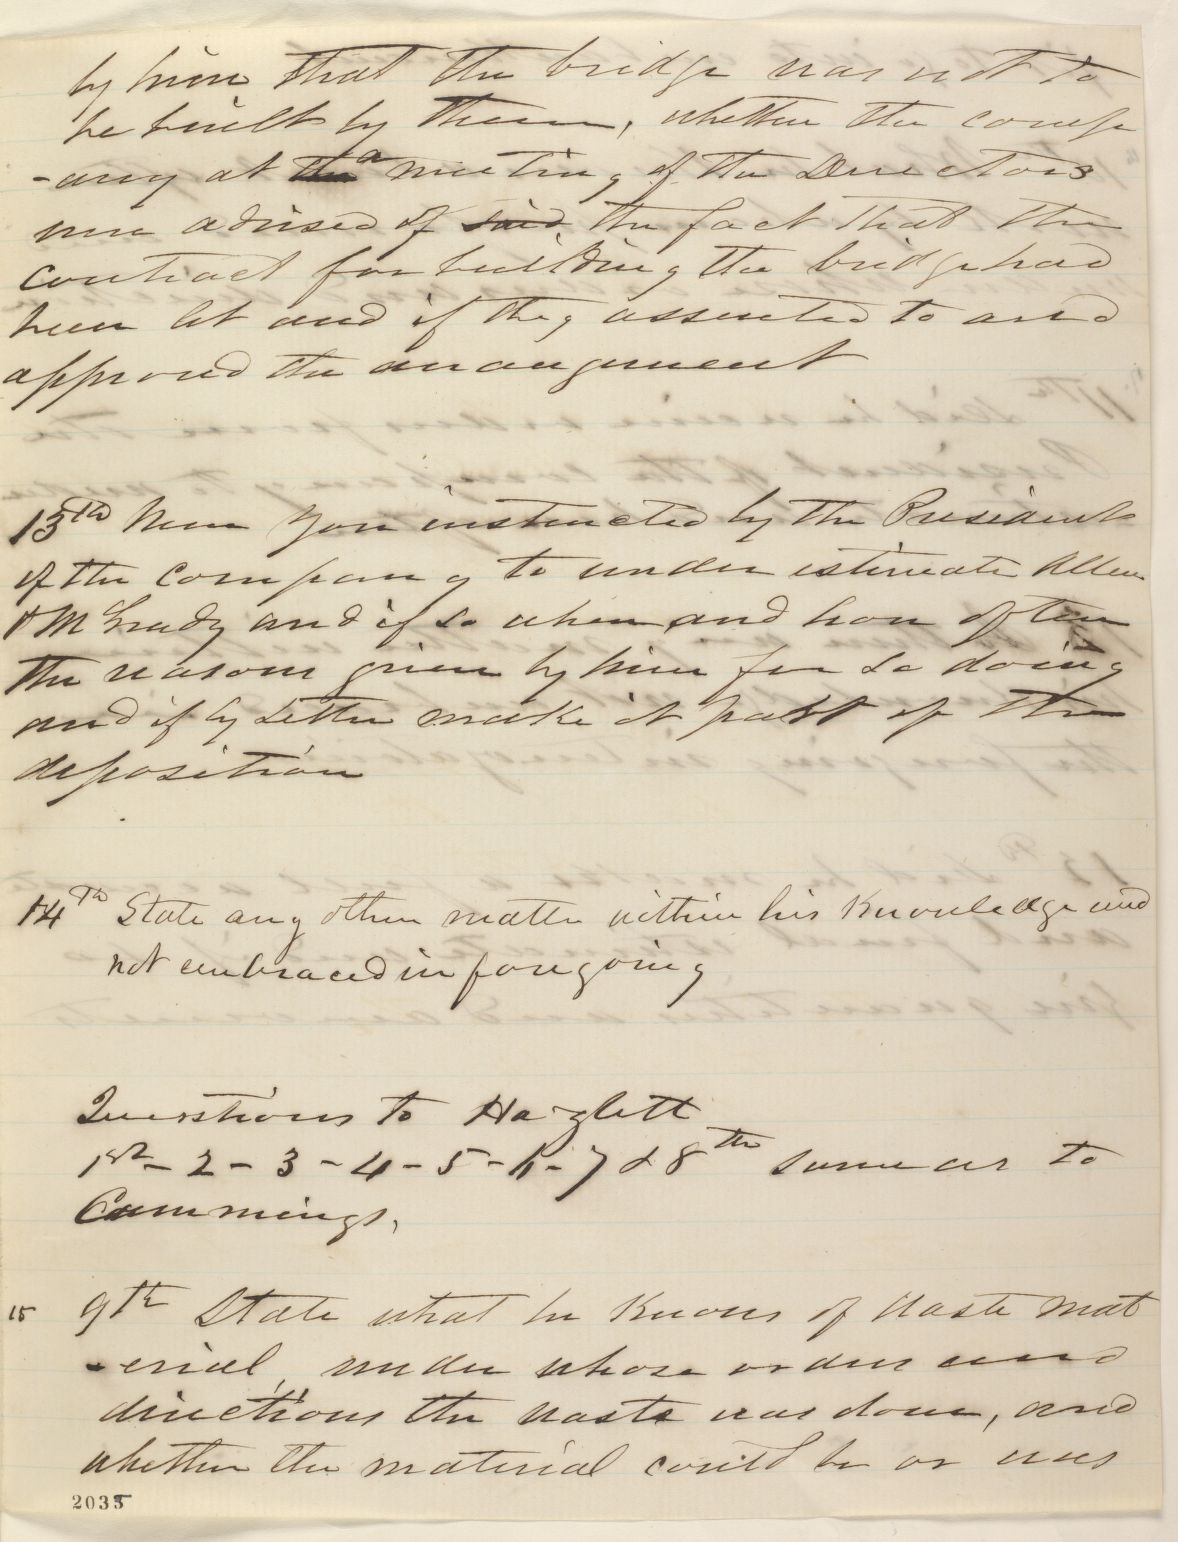 by him that the bridge was not to
be built by them, whether the comp
-any at the a meeting of the Directors
were advised of said the fact that the
contract for building the bridge had
been let and if they assented to and
approved the arrangement
13th Were you instructed by the President
of the company to under estimate Allen
& McGrady and if so when and how often
the reasons given by him for so doing
and if by letter make it part of the
deposition
14th State any other matter within his Knowledge and
not embraced in foregoing
Questions to Hazlett
1st - 2 - 3 - 4 - 5 - 6 - 7 & 8th same as to
Cummings,
15 9th State what he Knows of Waste Mat
-erial, under whose orders and
directions the waste was done, and
whether the material could be or was
2035